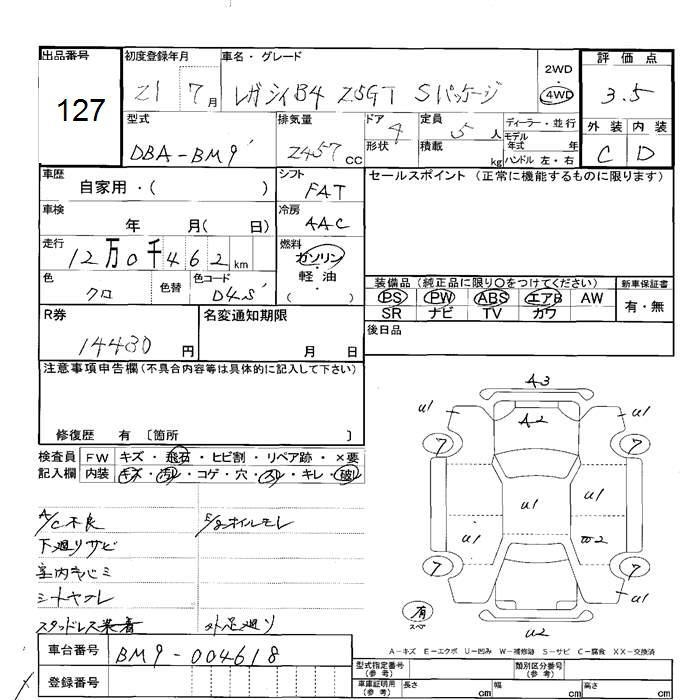 出品番号 127
初度登録年月 21 7月
車名・グレード レガシィB4 2.5GT Sパッケージ
2WD
4WD
評価点 3.5
外装 内装
C D
型式 DBA-BM9
排気量 2457cc
ドア 4
形状
定員 5人
積載 kg
ディーラー・並行
モデル年式 年
ハンドル 左・右
車歴 自家用・( )
シフト FAT
セールスポイント (正常に機能するものに限ります)
車検 年 月( 日)
冷房 AAC
走行 12万0千462km
燃料 ガソリン・軽油
( )
色 クロ 色替
色コード D4S
装備品 (純正品に限り○をつけてください)
PS PW ABS エアB AW
SR ナビ TV カワ
新車保証書
有・無
R券 14480円
名変通知期限 月 日
後日品
注意事項申告欄(不具合内容等は具体的に記入して下さい)
修復歴 有 〔箇所 〕
検査員記入欄
FW キズ・飛石・ヒビ割・リペア跡・×要
内装 キズ・汚レ・コゲ・穴・スレ・キレ・破レ
A/C不良 E/gオイルモレ
下廻りサビ
室内キバミ
シートヤブレ
スタッドレス装着 外足廻り
A3
A2
u1 u1
7 7
u1 u1
u1 W2
7 7
u1 u1
有 スペア
u2
A-キズ E-エクボ U-凹み W-補修跡 S-サビ C-腐食 XX-交換済
車台番号 BM9-004618
登録番号
型式指定番号(参考)
類別区分番号(参考)
車庫証明用(参考) 長さ cm 幅 cm 高さ cm